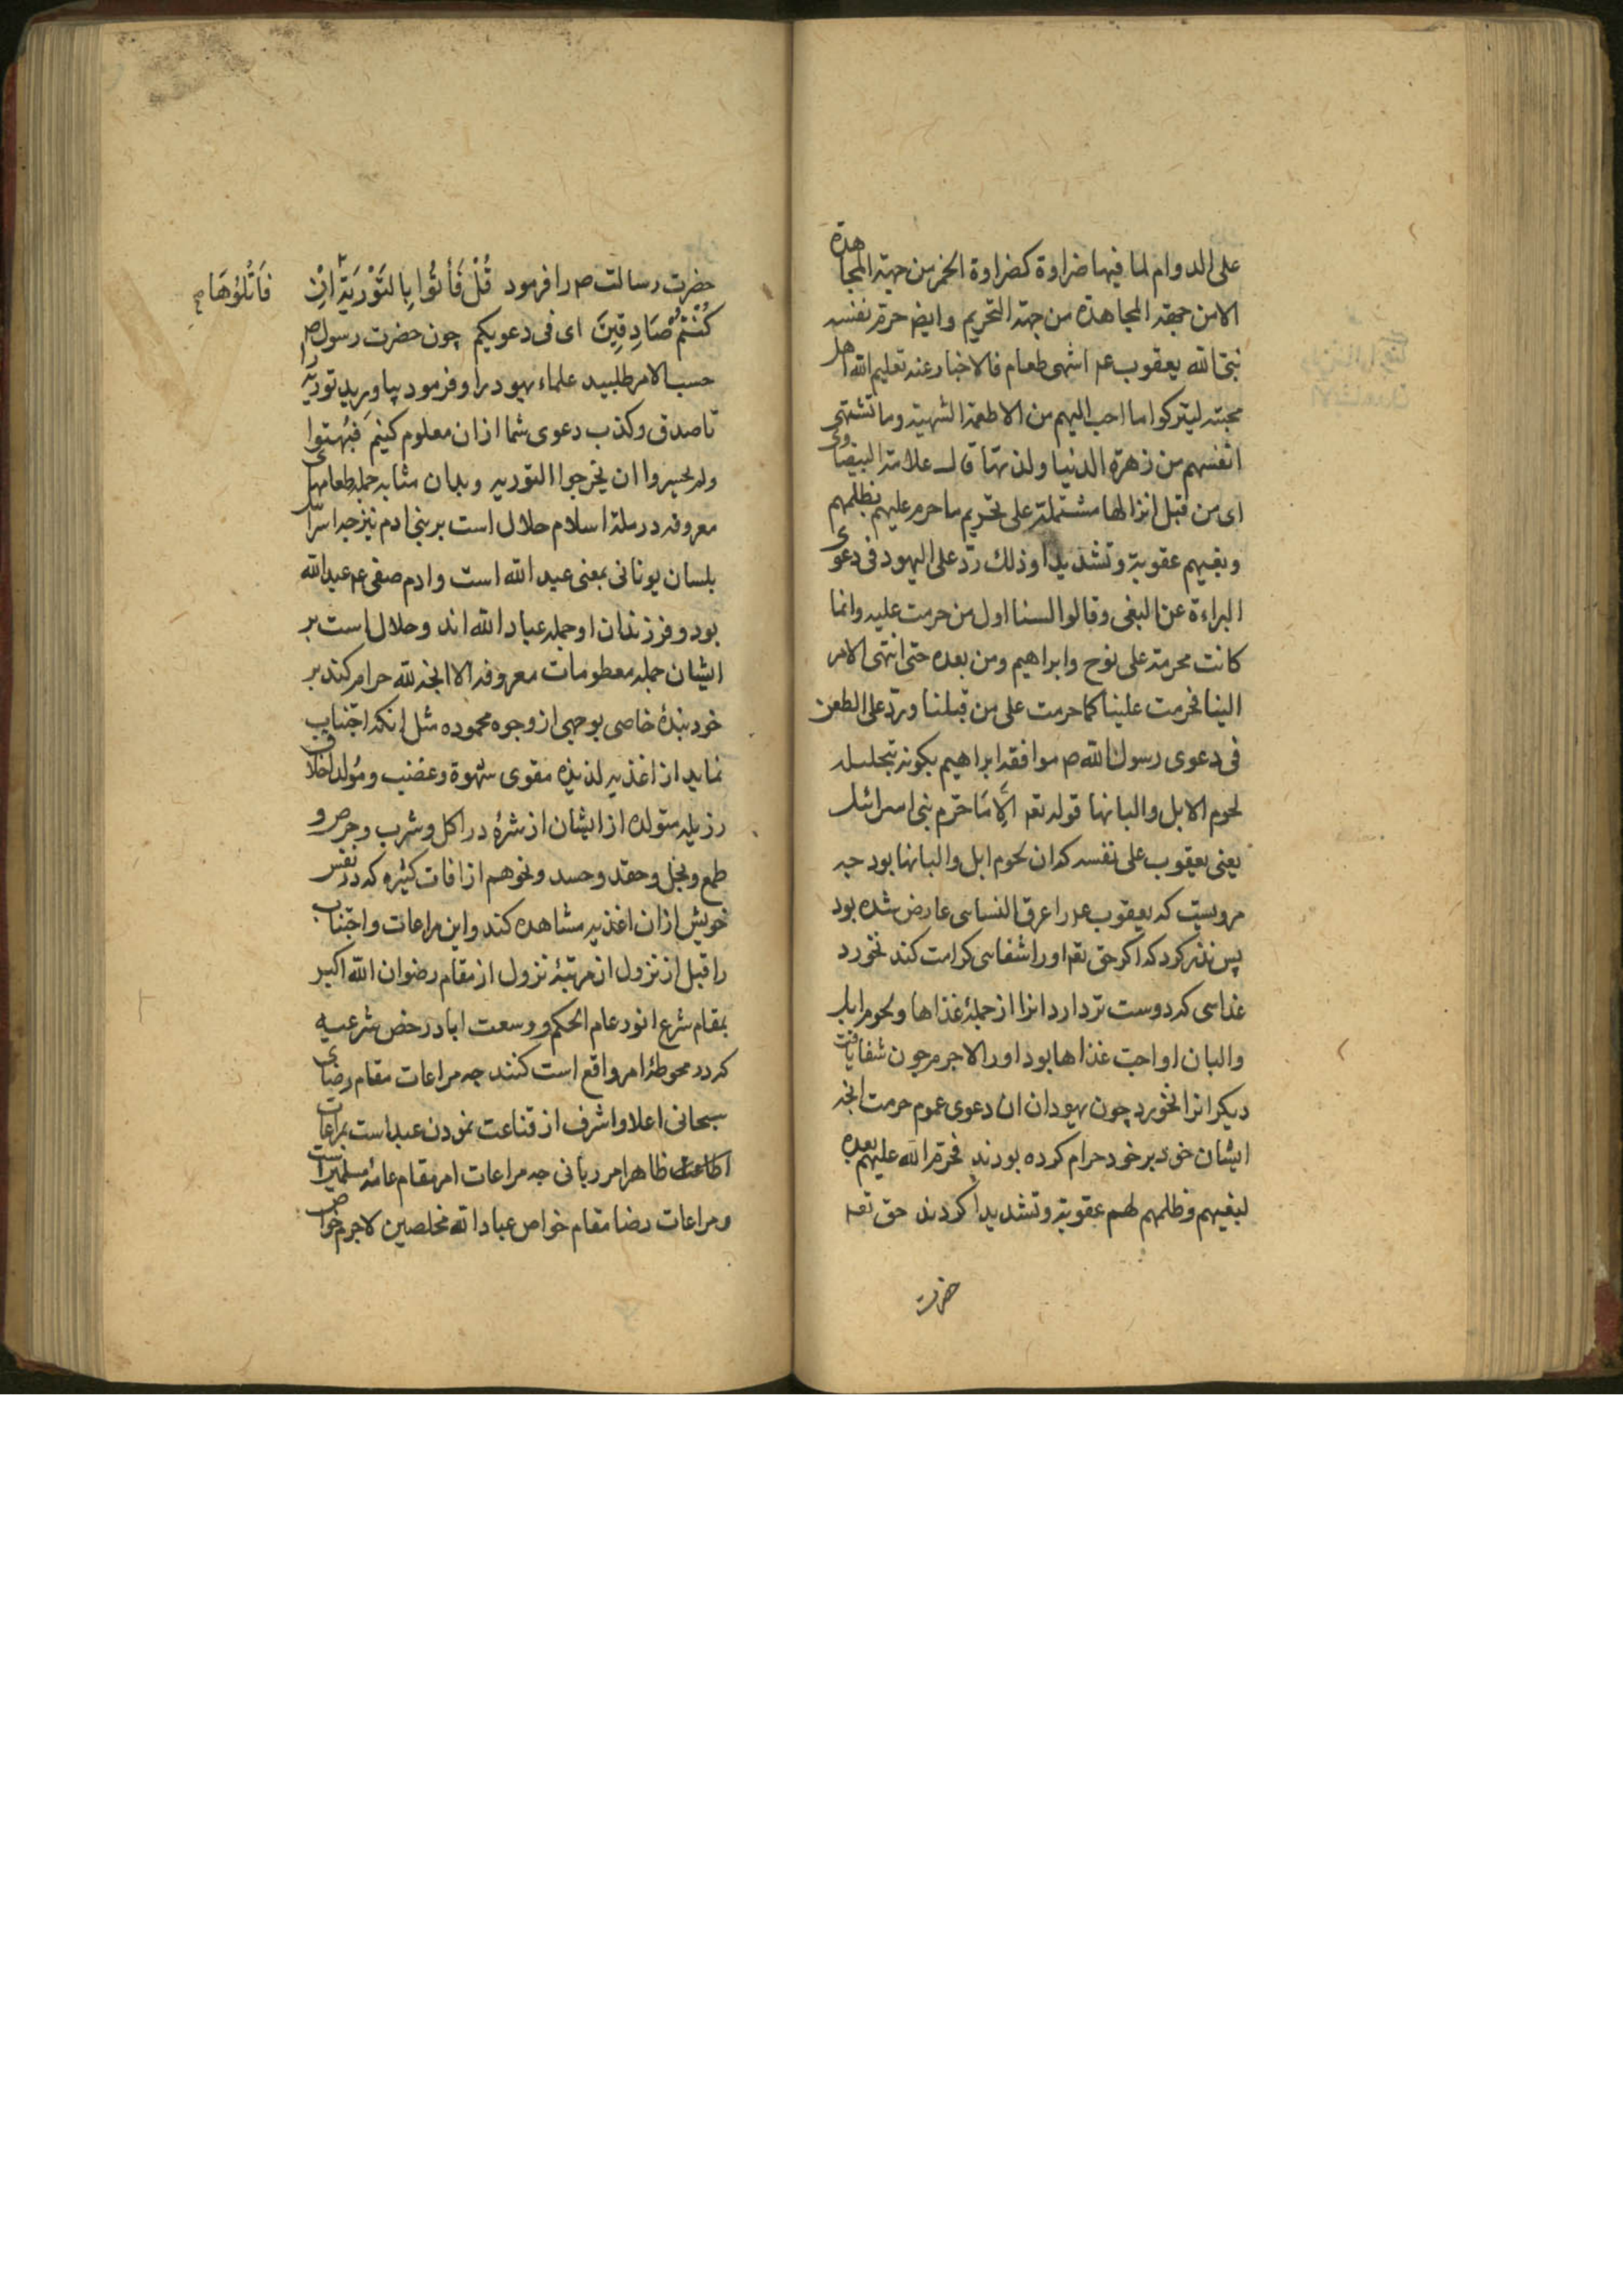 على الدوام لما فيها ضراوة كضراوة الخمر من جهة المجاهدة
الا من جهة المجاهدة من جهة التحريم وايض حرم نفسه
نبى الله يعقوب عم اشهى طعام فالاخبار عنه تعليم الله اهل
محبته ليتركوا ما احب اليهم من الاطعمة الشهية وما تشتهى
انفسهم من زهرة الدنيا ولذتها قال علامة البيضاوى
اى من قبل انزالها مشتملة على تحريم ما حرم عليهم بظلمهم
وبغيهم عقوبة وتشديدا وذلك ردّ على اليهود فى دعوى
البراءة عن البغى وقالوا لسنا اول من حرمت عليه وانما
كانت محرمة على نوح وابراهيم ومن بعده حتى انتهى الامر
الينا فحرمت علينا كما حرمت على من قبلنا وردّ على الطعن
فى دعوى رسول الله ص موافقة ابراهيم بكونه بتحليله
لحوم الابل والبانها قوله تعم اِلَّا مَا حَرّم بنى اسرائيل
يعنى يعقوب على نفسه كه ان لحوم ابل والبانها بود جه
مرويست كه يعقوب عم را عرق النساى عارض شده بود
پس نذر كرد كه اكر حق تعم او را شفاى كرامت كند نخورد
غذاى كه دوست تر دارد انرا از جملۀ غذاها ولحوم ابل
والبان او احب غذاها بود اورا لاجرم چون شفا يافت
ديكر انرا نخورد چون يهودان ان دعوى عموم حرمت انجه
ايشان خود بر خود حرام كرده بودند فحرّم الله عليهم بعده
لبغيهم وظلمهم لهم عقوبة وتشديدا كردند حق تعم
حضرت
حضرت رسالت ص را فرمود قُلْ فَأتُوا بِالتَوْرَيةِ اِنْ
فَاَتْلُوْهَا صح
كُنْتُمْ صَادِقِيْنَ اى فى دعويكم چون حضرت رسول ص
حسب الامر طلبيد علماء يهود را وفرمود بياوريد تورية را
تا صدق وكذب دعوى شما ازان معلوم كنيم فَبُهتوا
ولم يجسروا ان يخرجوا التورية وبدان مثابه جمله طعامهاى
معروفه در ملة اسلام حلال است بر بنى ادم نيز جه اسرائيل
بلسان يونانى بمعنى عبد الله است وادم صفى عم عبد الله
بود وفرزندان او جمله عباد الله اند وحلال است بر
ايشان جمله معطومات معروفه الا انجه لله حرام كند بر
خود بندۀ خاصى بوجهى از وجوه محموده مثل انكه اجتناب
نمايد از اغذيه لذيذه مقوى شهوة وغضب ومولد اخلاق
رزيله متولده از ايشان از شرۀ در اكل وشرب وحرص و
طمع وبخل وحقد وحسد ونحوهم از افات كثيره كه در نفس
خويش ازان اغذيه مشاهده كند واين مراعات واجتناب
را قبل از نزول از مرتبۀ نزول از مقام رضوان الله اكبر
بمقام شرع انور عام الحكم ووسعت اباد رخص شرعيه
كه در محوطۀ امر واقع است كنند جه مراعات مقام رضاى
سبحانى اعلا واشرف از قناعت نمودن عبد است بمراعات
اطاعت ظاهر امر ربانى جه مراعات امر مقام عامۀ مسلمين است
ومراعات رضا مقام خواص عباد الله مخلصين لاجرم خواص